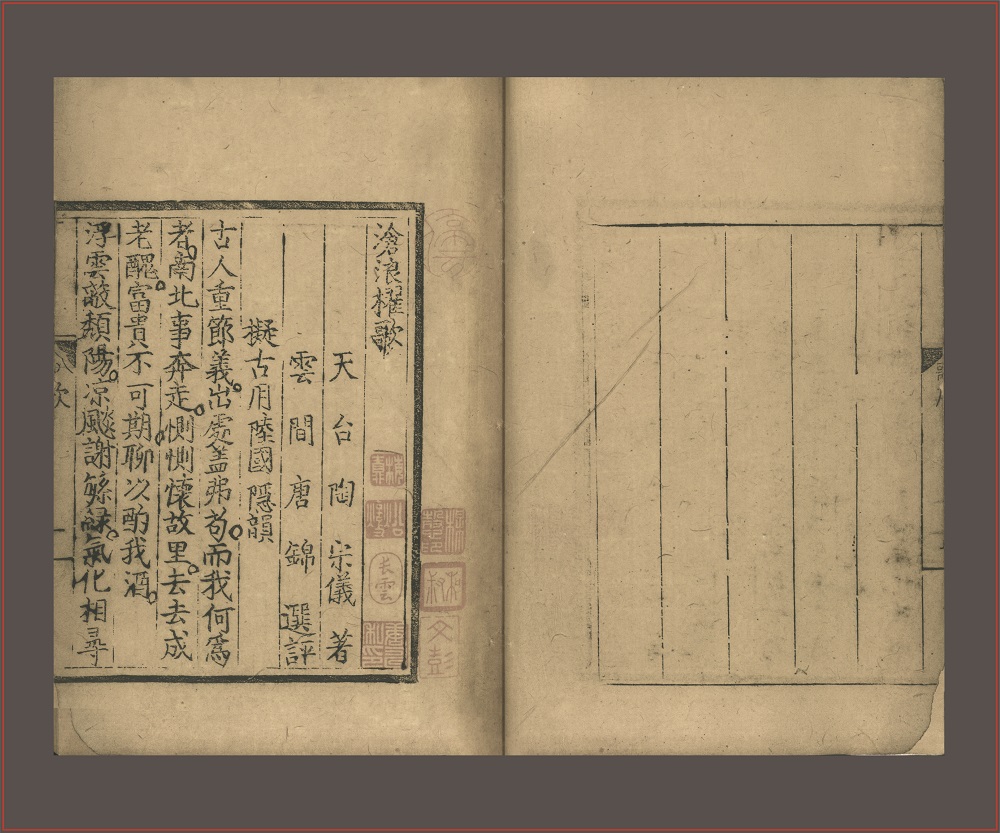 滄浪櫂歌
天台陶宗儀著
雲間唐錦選評
擬古用陸國隱韻
古人重節義出處盖弗苟而我何爲
者南北事奔走惻惻懷故里去去成
老醜富貴不可期聊以酌我酒
浮雲蔽頽陽凉飈謝緐綠氣化相尋
文彭